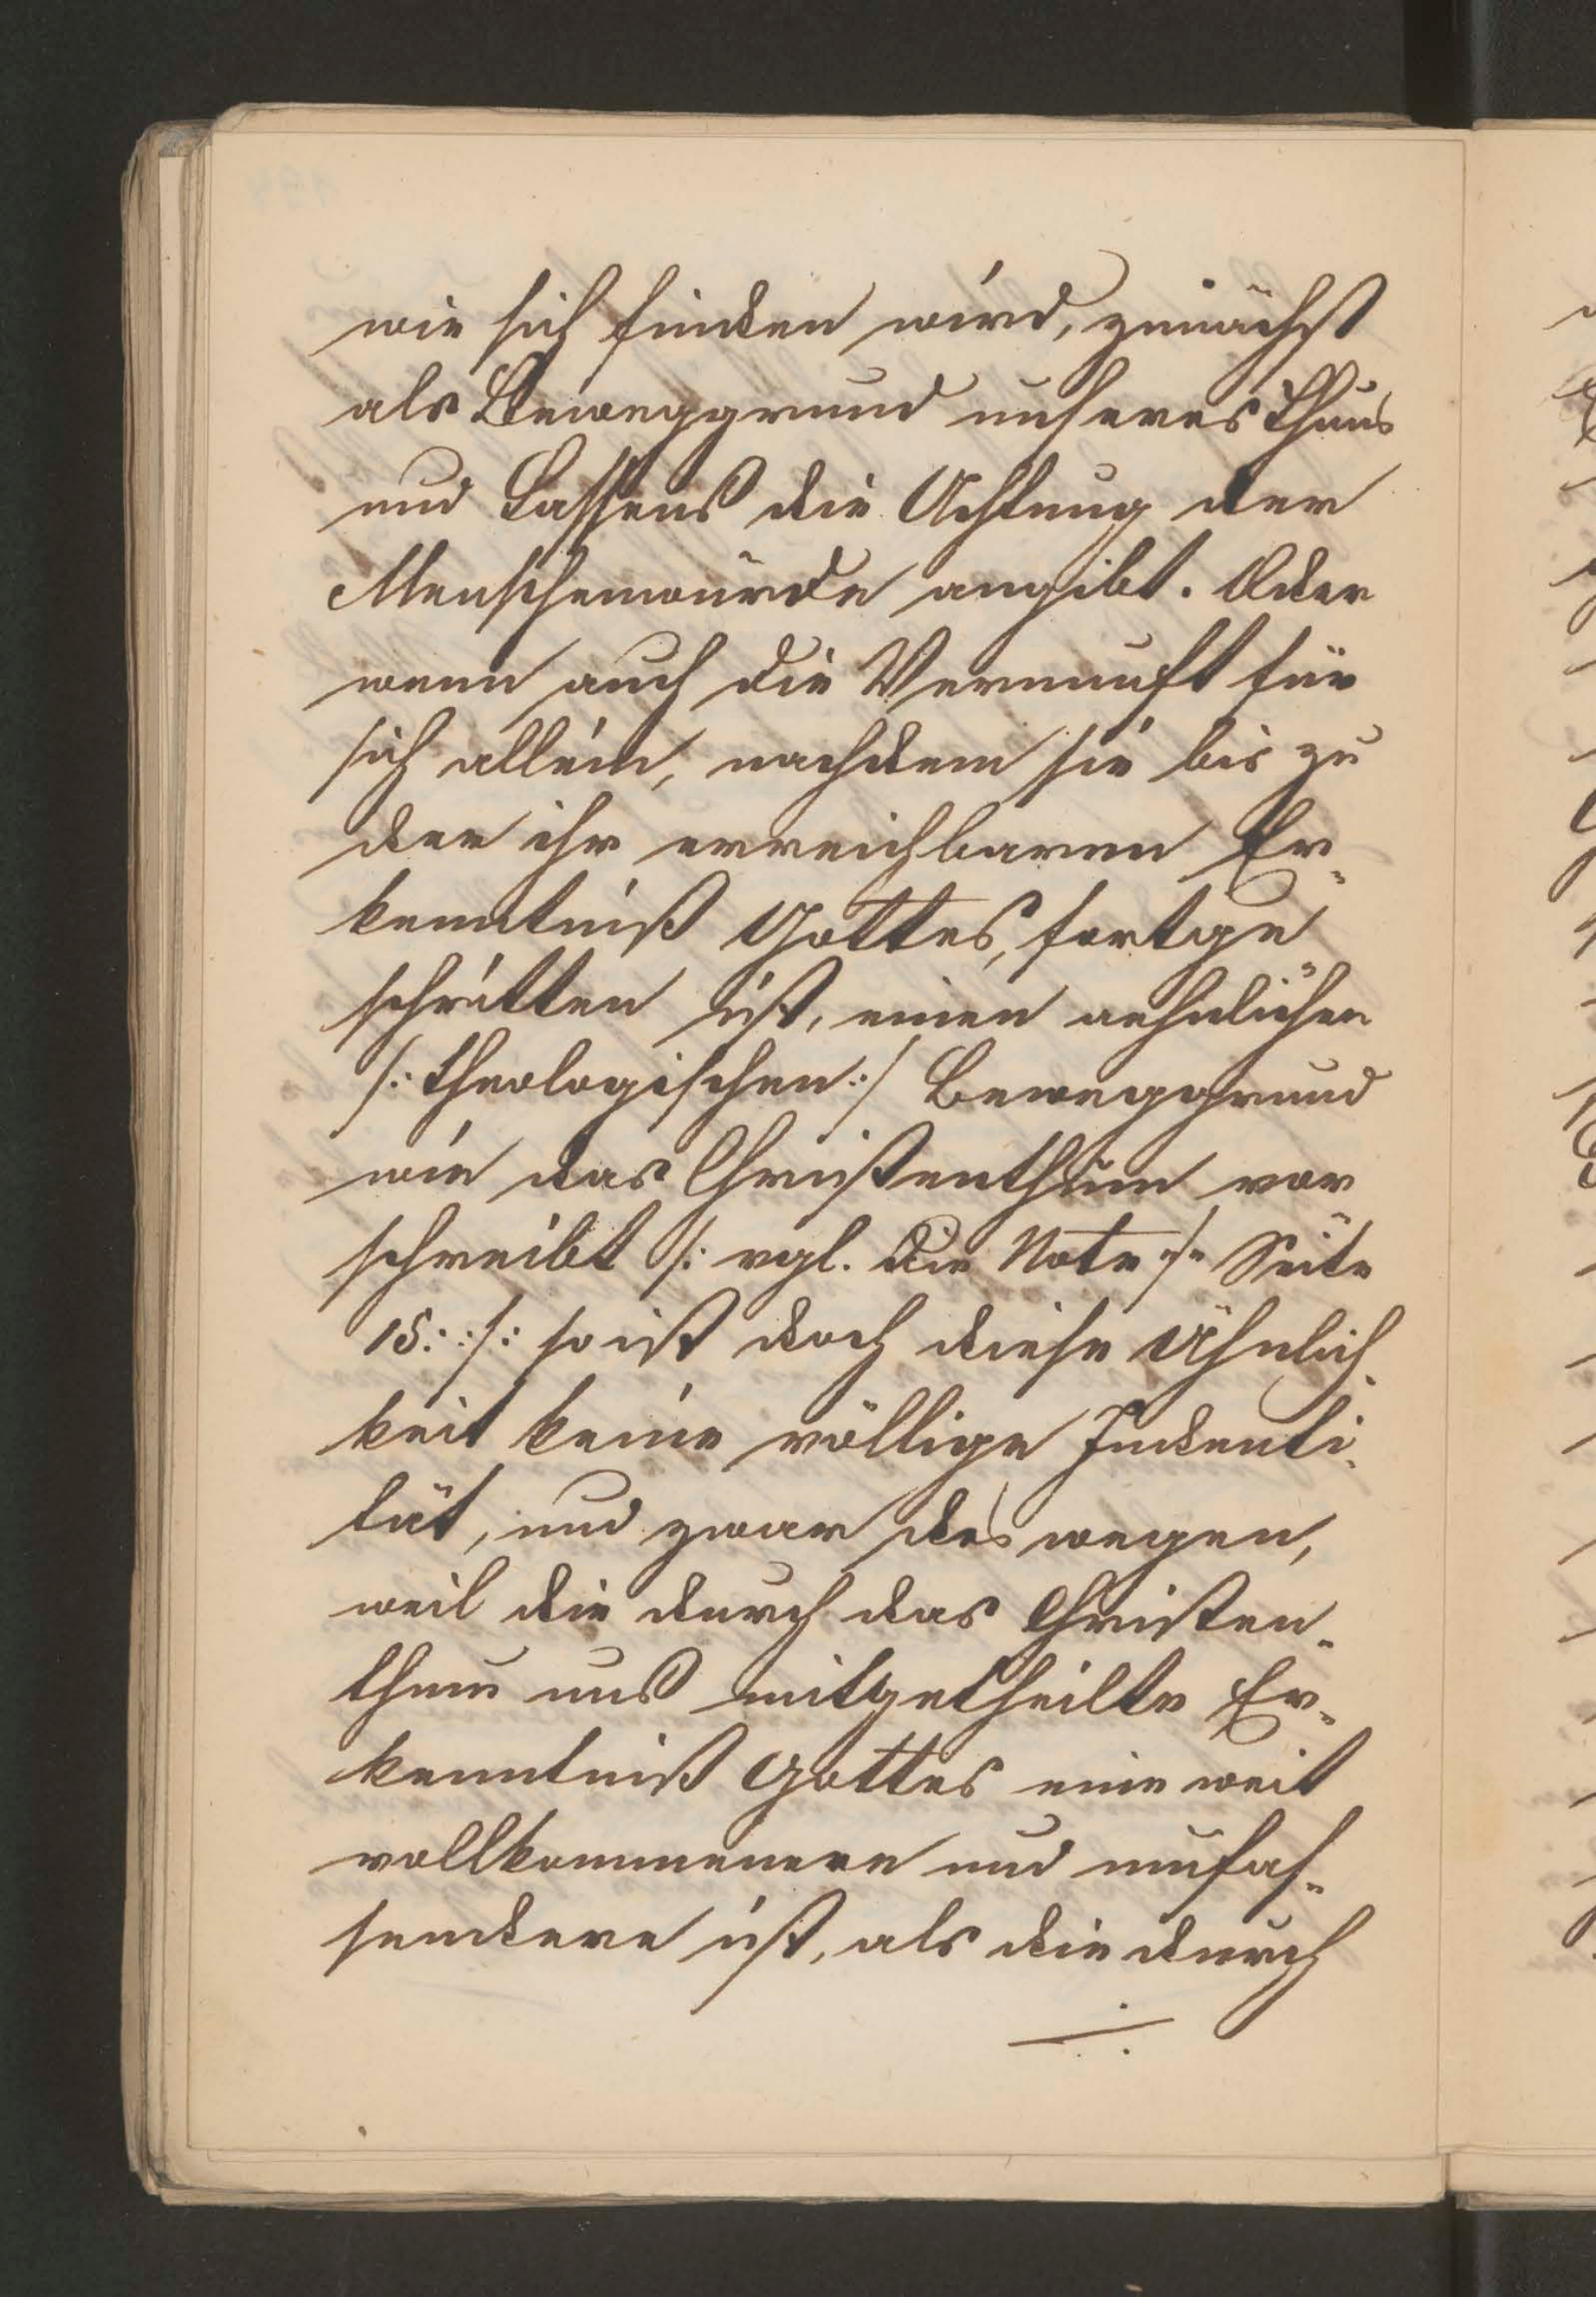 wie sich finden wird, zunächst
als Beweggrund unseres Thuns
und Lassens die Achtung der
Menschenwürde angibt. Oder
wenn auch die Vernunft für
sich allein, nachdem sie bis zu
der ihr erreichbaren Er-
kenntniß Gottes, fortge
schritten ist, einen aehnlichen
/: theologischen :/ Beweggrund
wie das Christenthum vor
schreibt /: vgl. die Note :/: Seite
15. :/: so ist doch diese Ähnlich
keit keine völlige Indenti
tät, und zwar des wegen,
weil die durch das Christen-
thum uns mitgetheilte Er-
kenntniß Gottes eine weit
vollkommenere und umfas-
sendere ist, als die durch